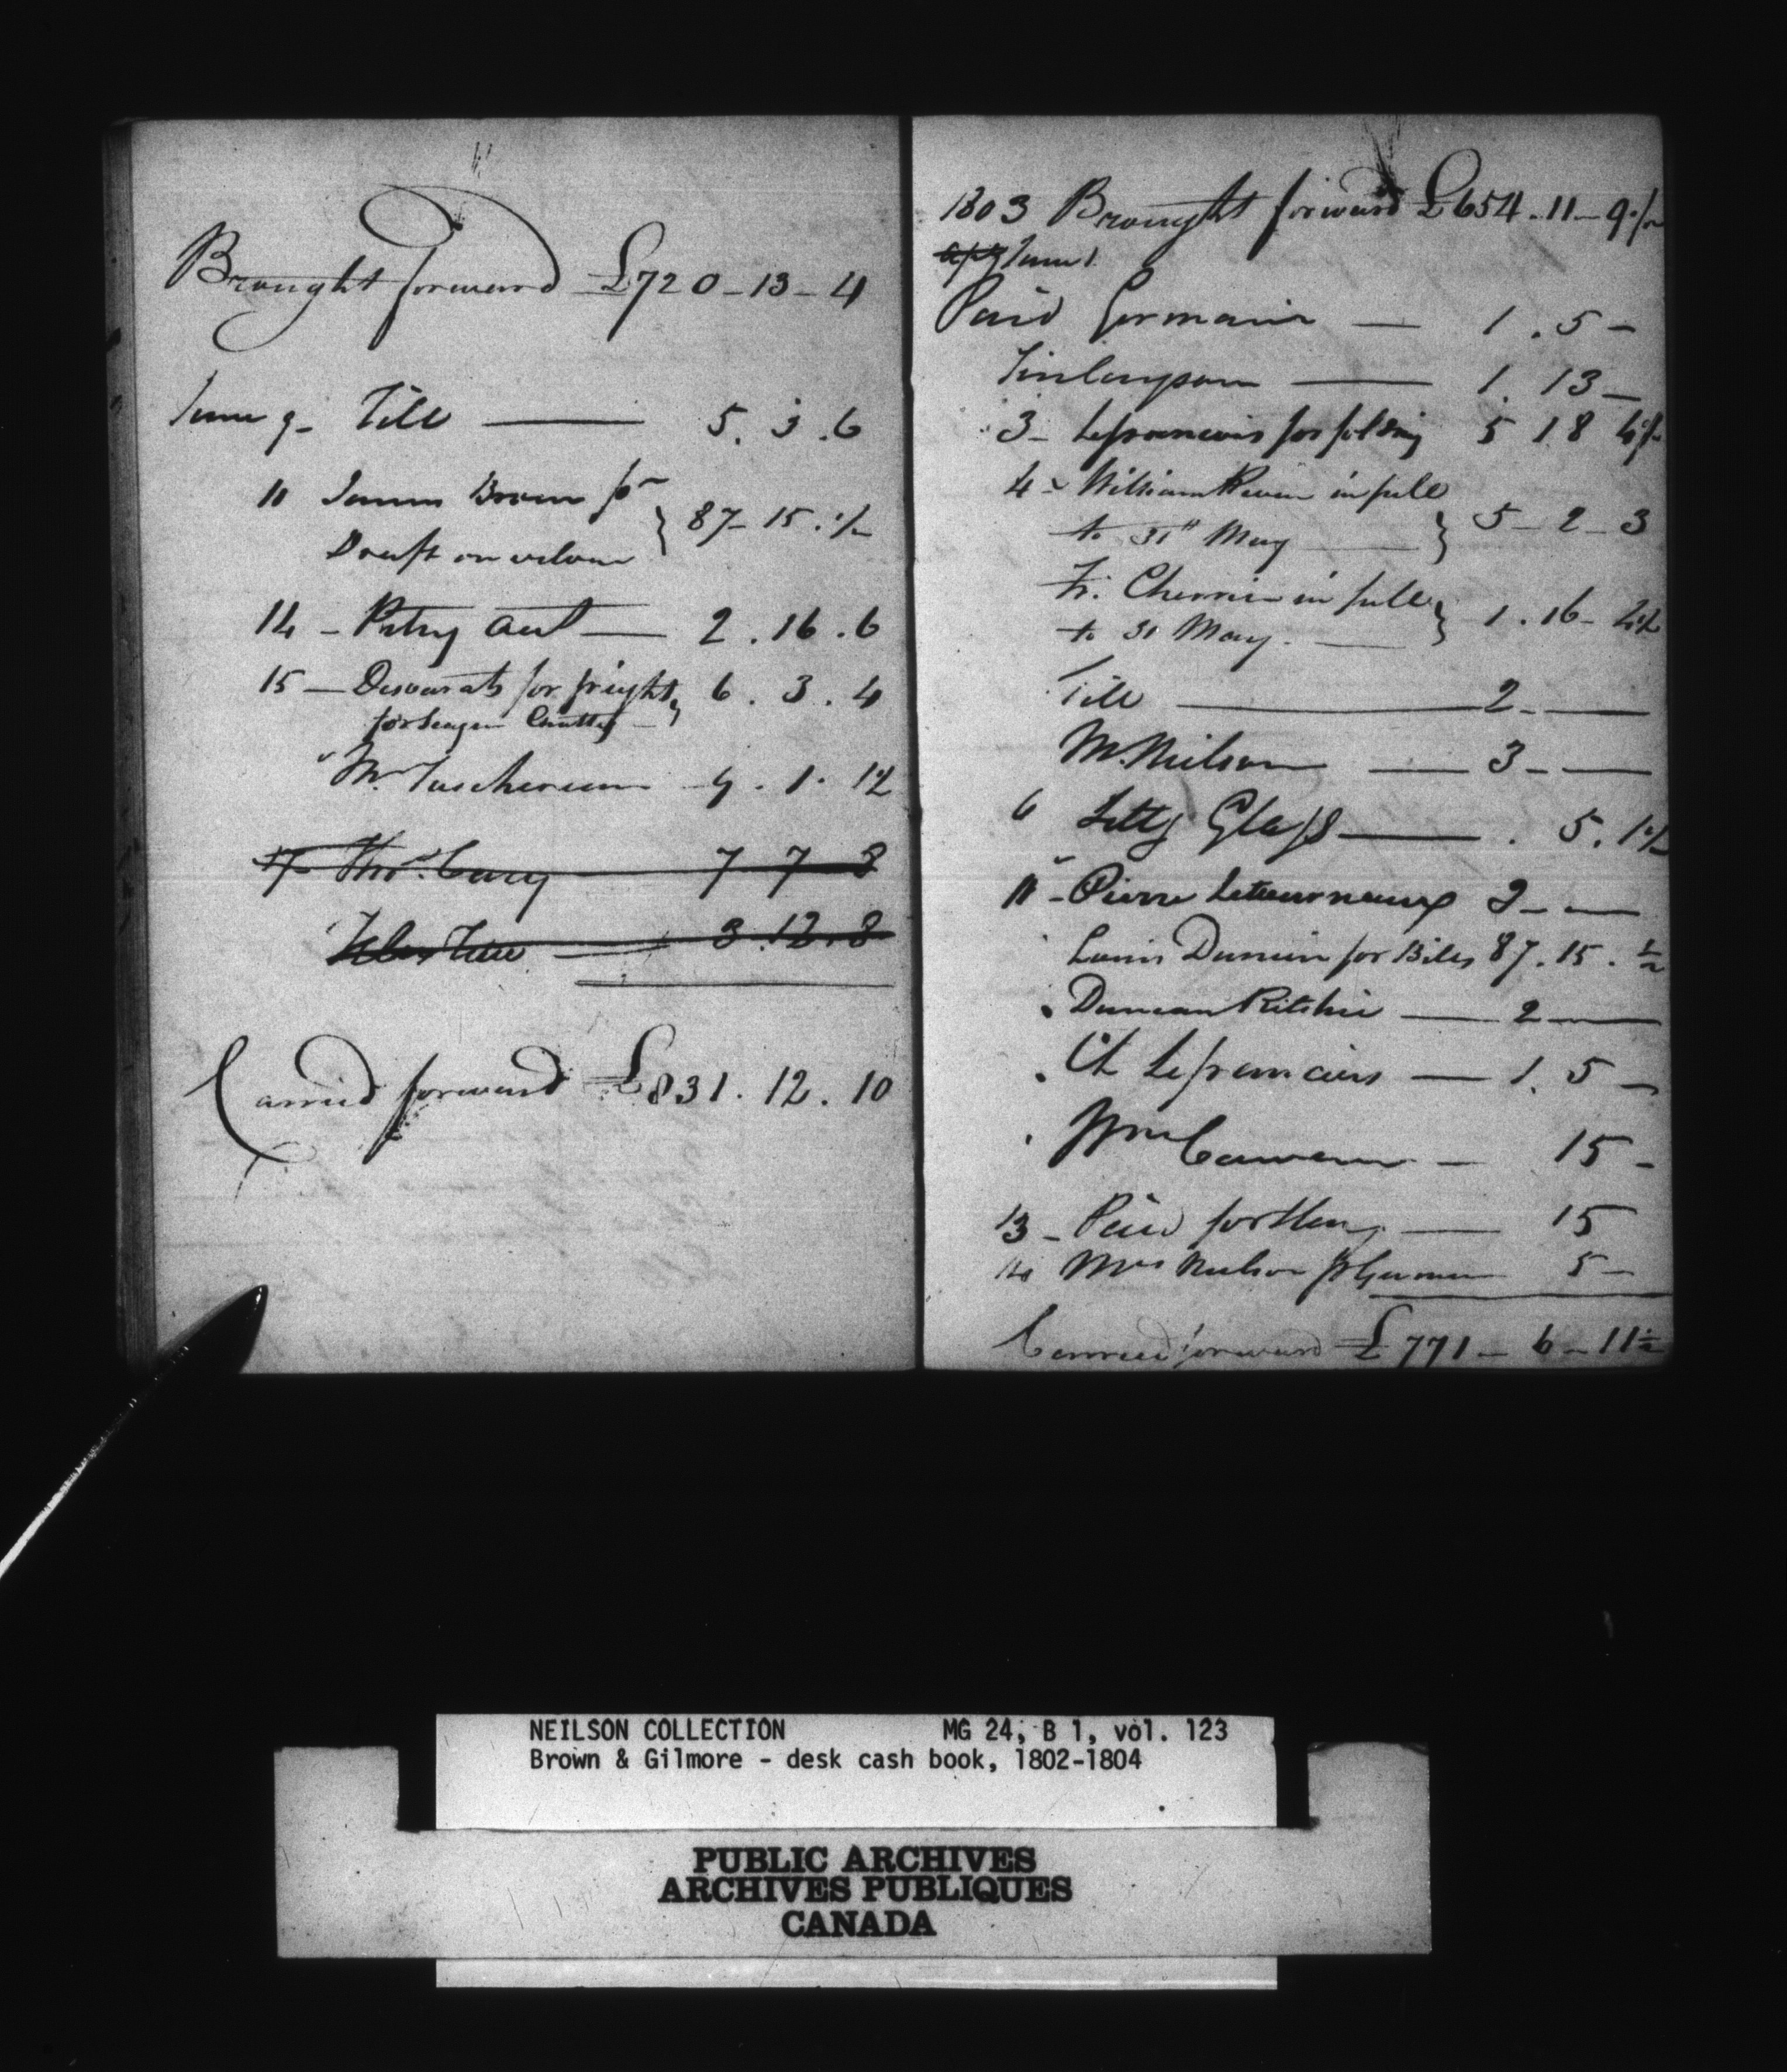 Brought forward £720-13-4
June 9- Till 5. 3. 6
11 James Brown for
Draft on 87-15. ½
14 - Petry 2. 16. 6
15 - Desbarats for freight 6. 3. 4
for
" Mr Taschereau 9. 1. 1½
17 Thos. Cary 7 7 8
3. 12. 8
Carried forward £831. 12. 10
1803 Brought forward £654-11-9½
June 1
Paid Germain 1. 5 -
Finlayson 1. 13 -
3- Lefrancois for folding 5 18 4½
4 - William in full
to 31st May 5-2-3
Fr. in full
to 31 May. 1. 16- 4½
Till 2-
M. Neilson 3-
6 Letty Glass . 5. 1½
11 - Pierre Letourneaux
Louis for Bills 87. 15. ½
Duncan Ritchie 2
Ch Lefrancois 1. 5 -
Wm Cowan 15 -
13 - Paid for 15
14 Mrs Neilson 5 -
Carried forward £771-6-11½
NEILSON COLLECTION MG 24, B 1, vol. 123
Brown & Gilmore - desk cash book, 1802-1804
PUBLIC ARCHIVES
ARCHIVES PUBLIQUES
CANADA